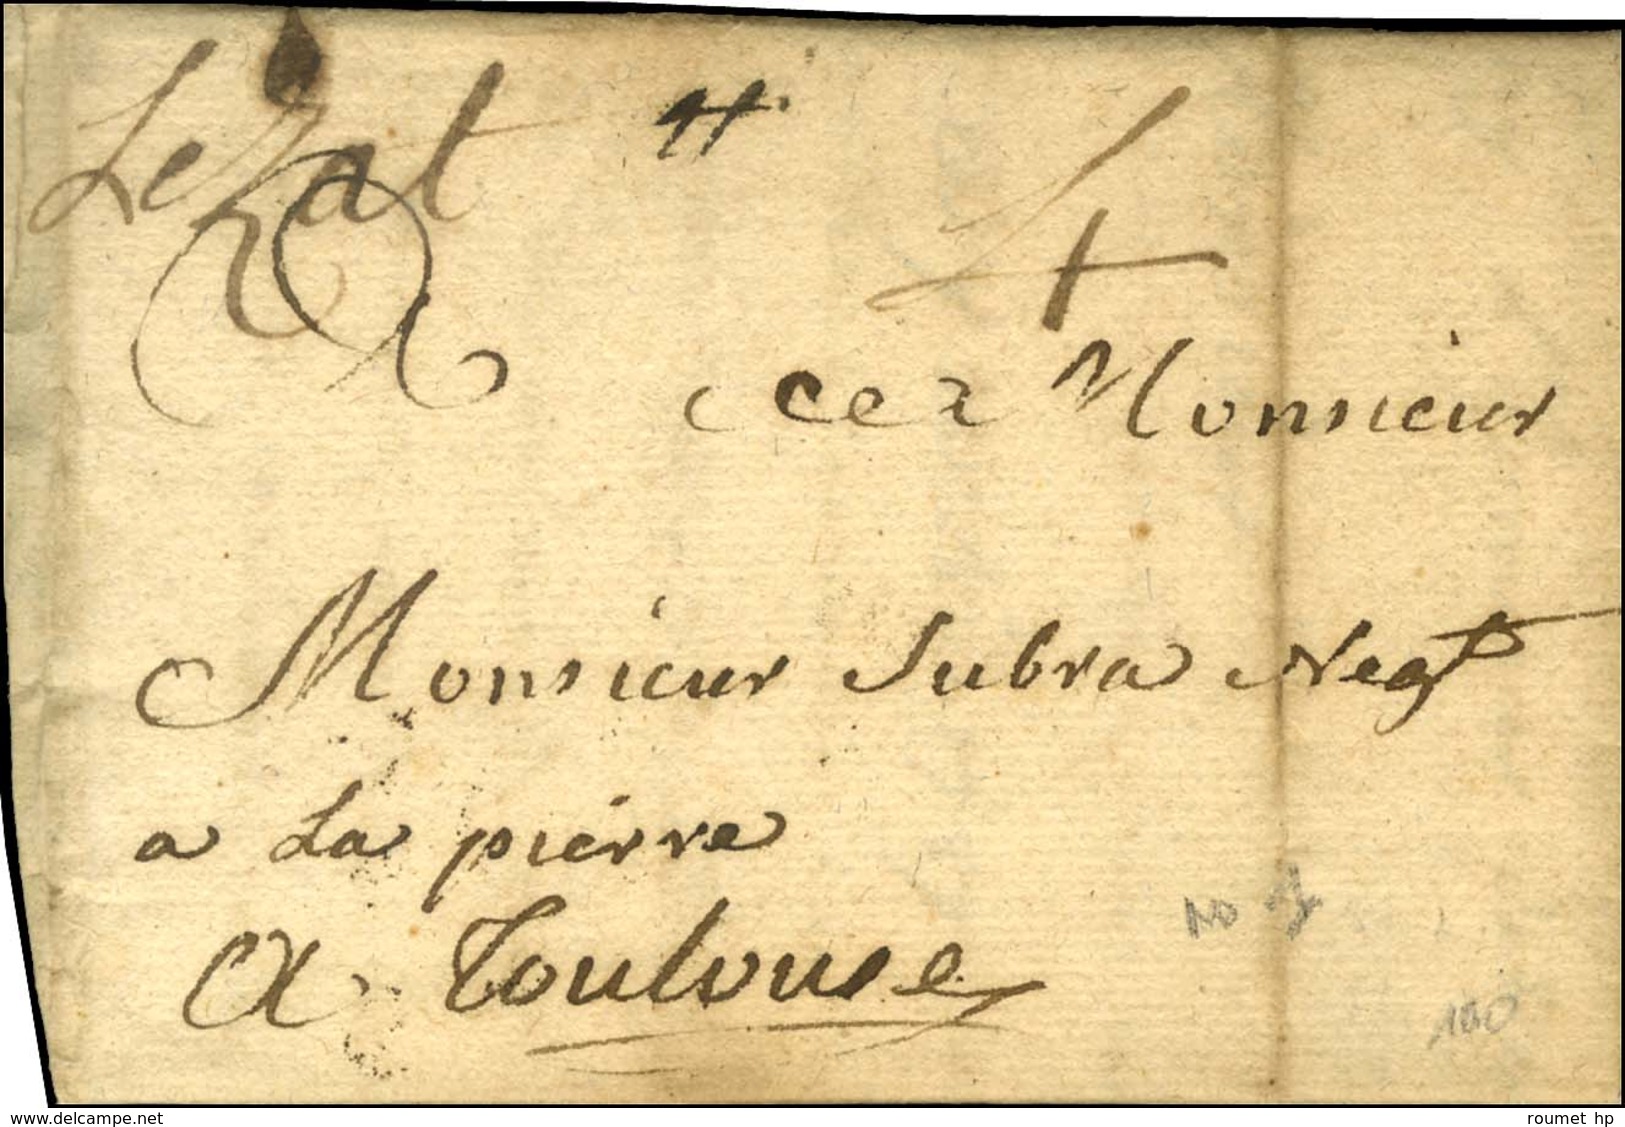 Lezat 4
4
A
Monsieur
Monsieur Subra Negt
a La pierre
A Toulouse
100
www.delcampe.net roumet hp